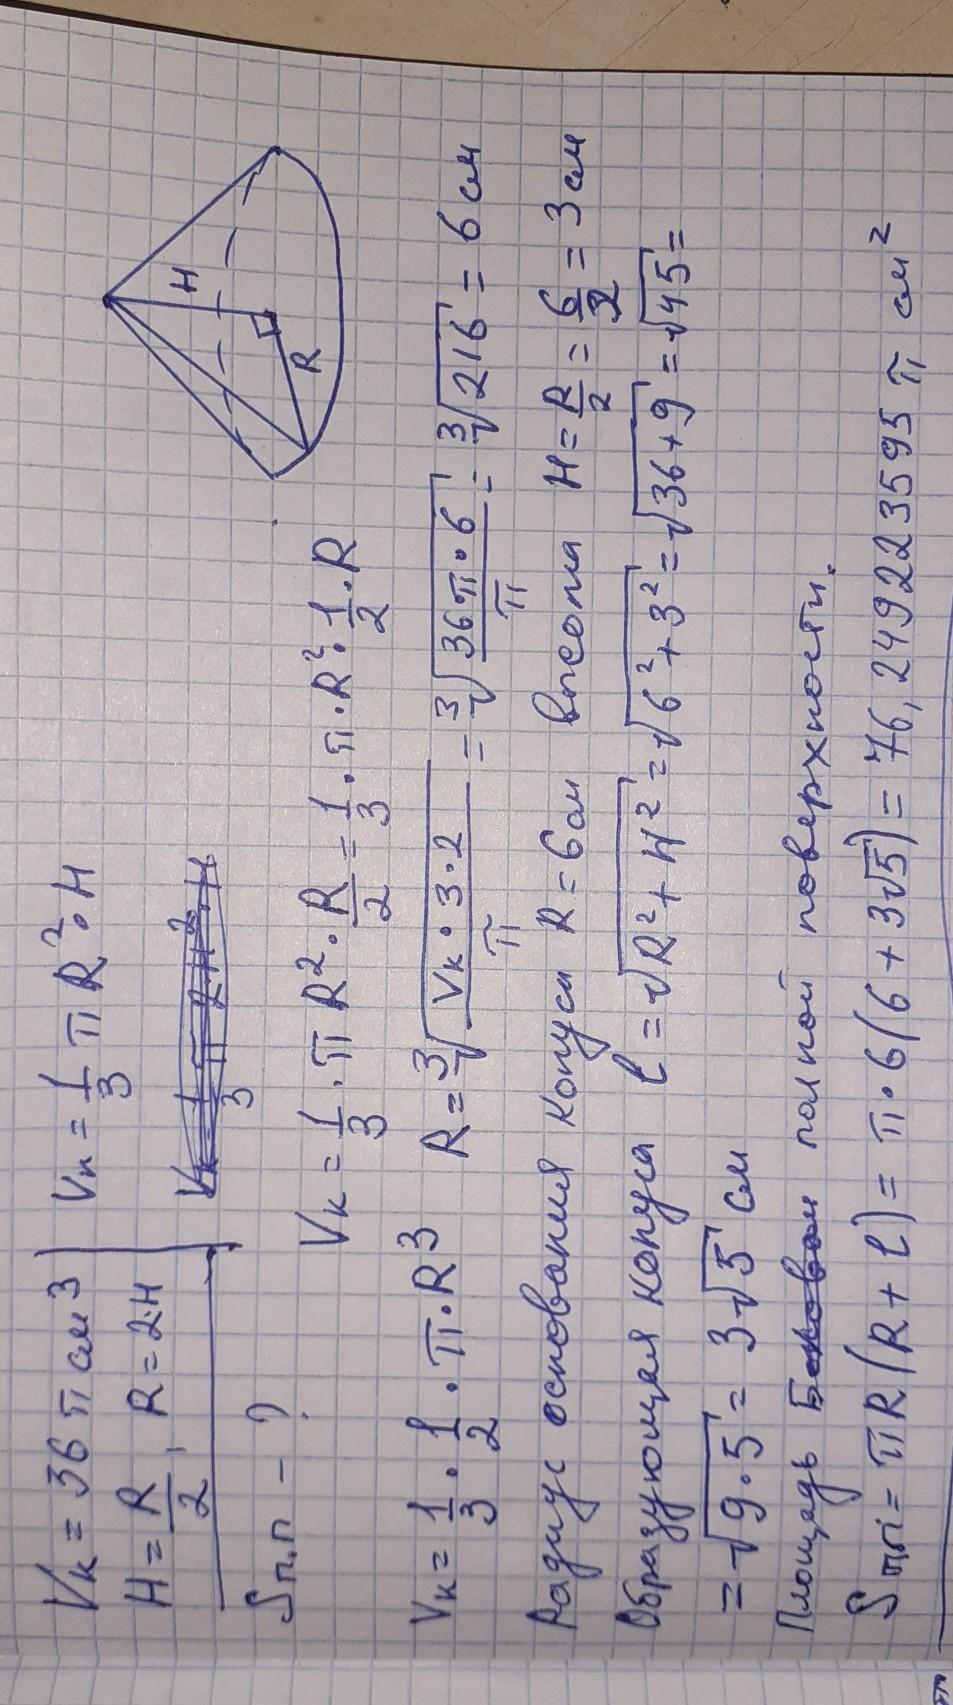 Vк = 36 π см3
H = R/2, R = 2·H
Sп.п - ?
Vк = 1/3 π R²·H
H
R
Vк = 1/3 · π R² · R/2 = 1/3 · π · R² · 1/2 · R
Vк = 1/3 · 1/2 · π · R³ R = ³√(Vк · 3 · 2 / π) = ³√(36 π · 6 / π) = ³√216 = 6 см
Радиус основания конуса R = 6 см высота H = R/2 = 6/2 = 3 см
Образующая конуса l = √(R² + H²) = √(6² + 3²) = √(36 + 9) = √45 =
= √(9 · 5) = 3√5 см
Площадь полной поверхности.
Sп.п = πR(R + l) = π · 6(6 + 3√5) = 76,24922359 5 π см²